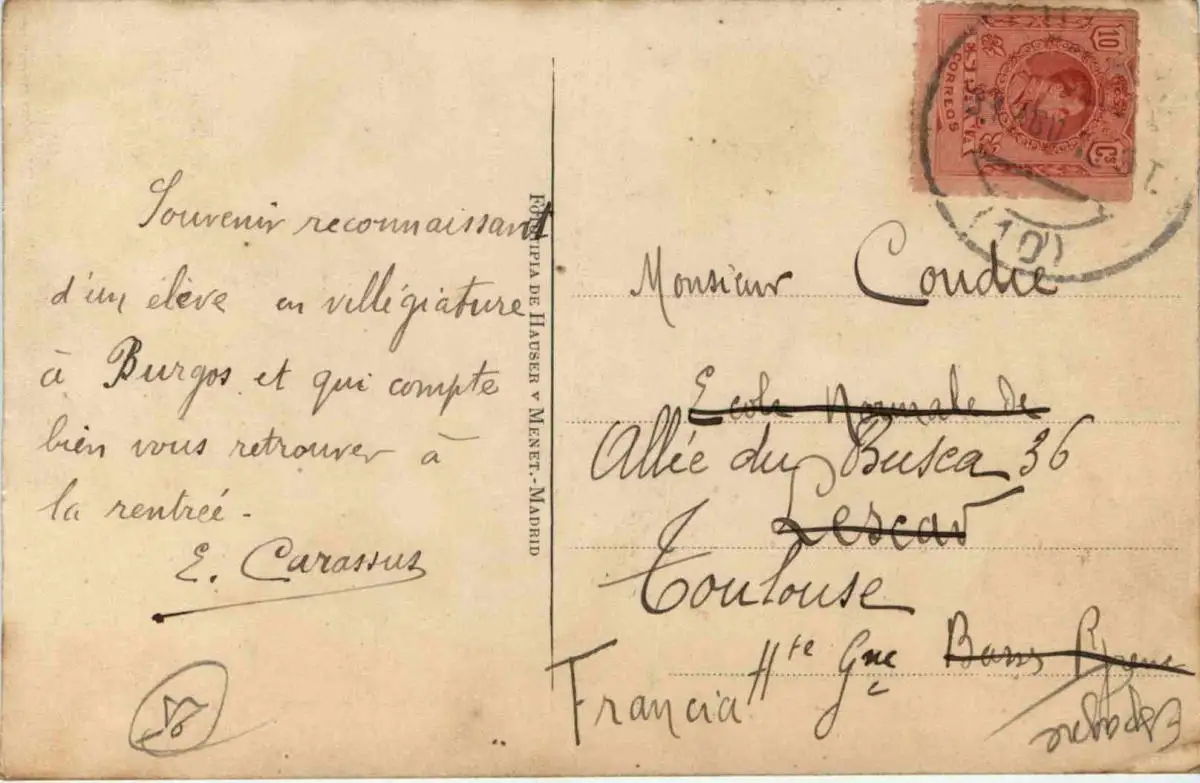 Souvenir reconnaissant
d'un élève en villégiature
à Burgos et qui compte
bien vous retrouver à
la rentrée.
E. Carassus
FOTOTIPIA DE HAUSER Y MENET.-MADRID
10 Cs
CORREOS
(10)
Monsieur Coudie
Ecole Normale de
Allée du Busca 36
Lescar
Toulouse
Hte Gne Basses Pyrene
Francia
Espagne